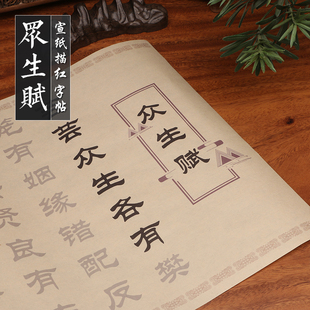 眾生賦
宣纸描红字帖
众生赋
芸众生各有樊
有姻缘错配反
良有